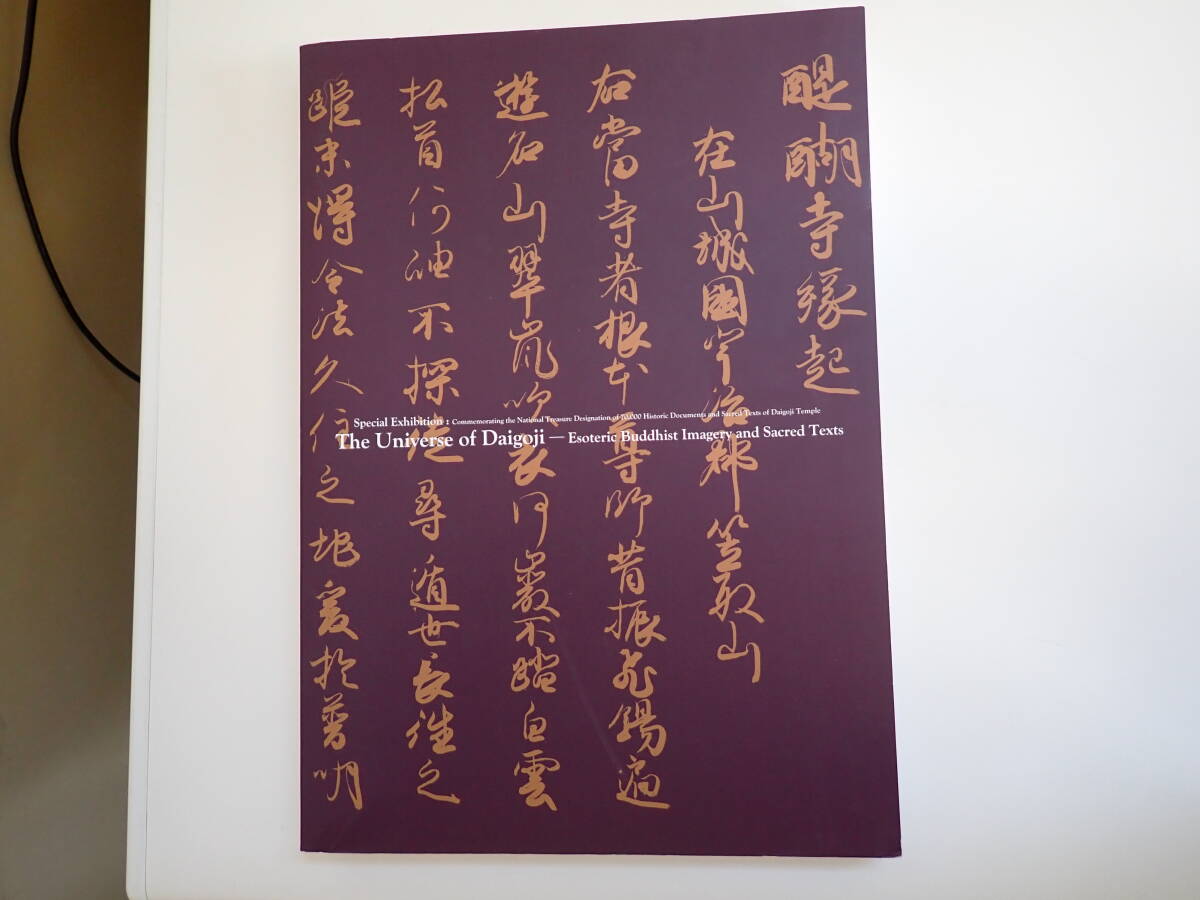 醍醐寺縁起
在山城國宇治郡笠取山
右當寺者根本尊師昔振飛錫遍
遊名山翠嵐吹衣何巖不踏白雲
払首何岫不探遂尋遁世長往之
蹤未得令法久住之地爰於普明
Special Exhibition : Commemorating the National Treasure Designation of 70,000 Historic Documents and Sacred Texts of Daigoji Temple
The Universe of Daigoji — Esoteric Buddhist Imagery and Sacred Texts